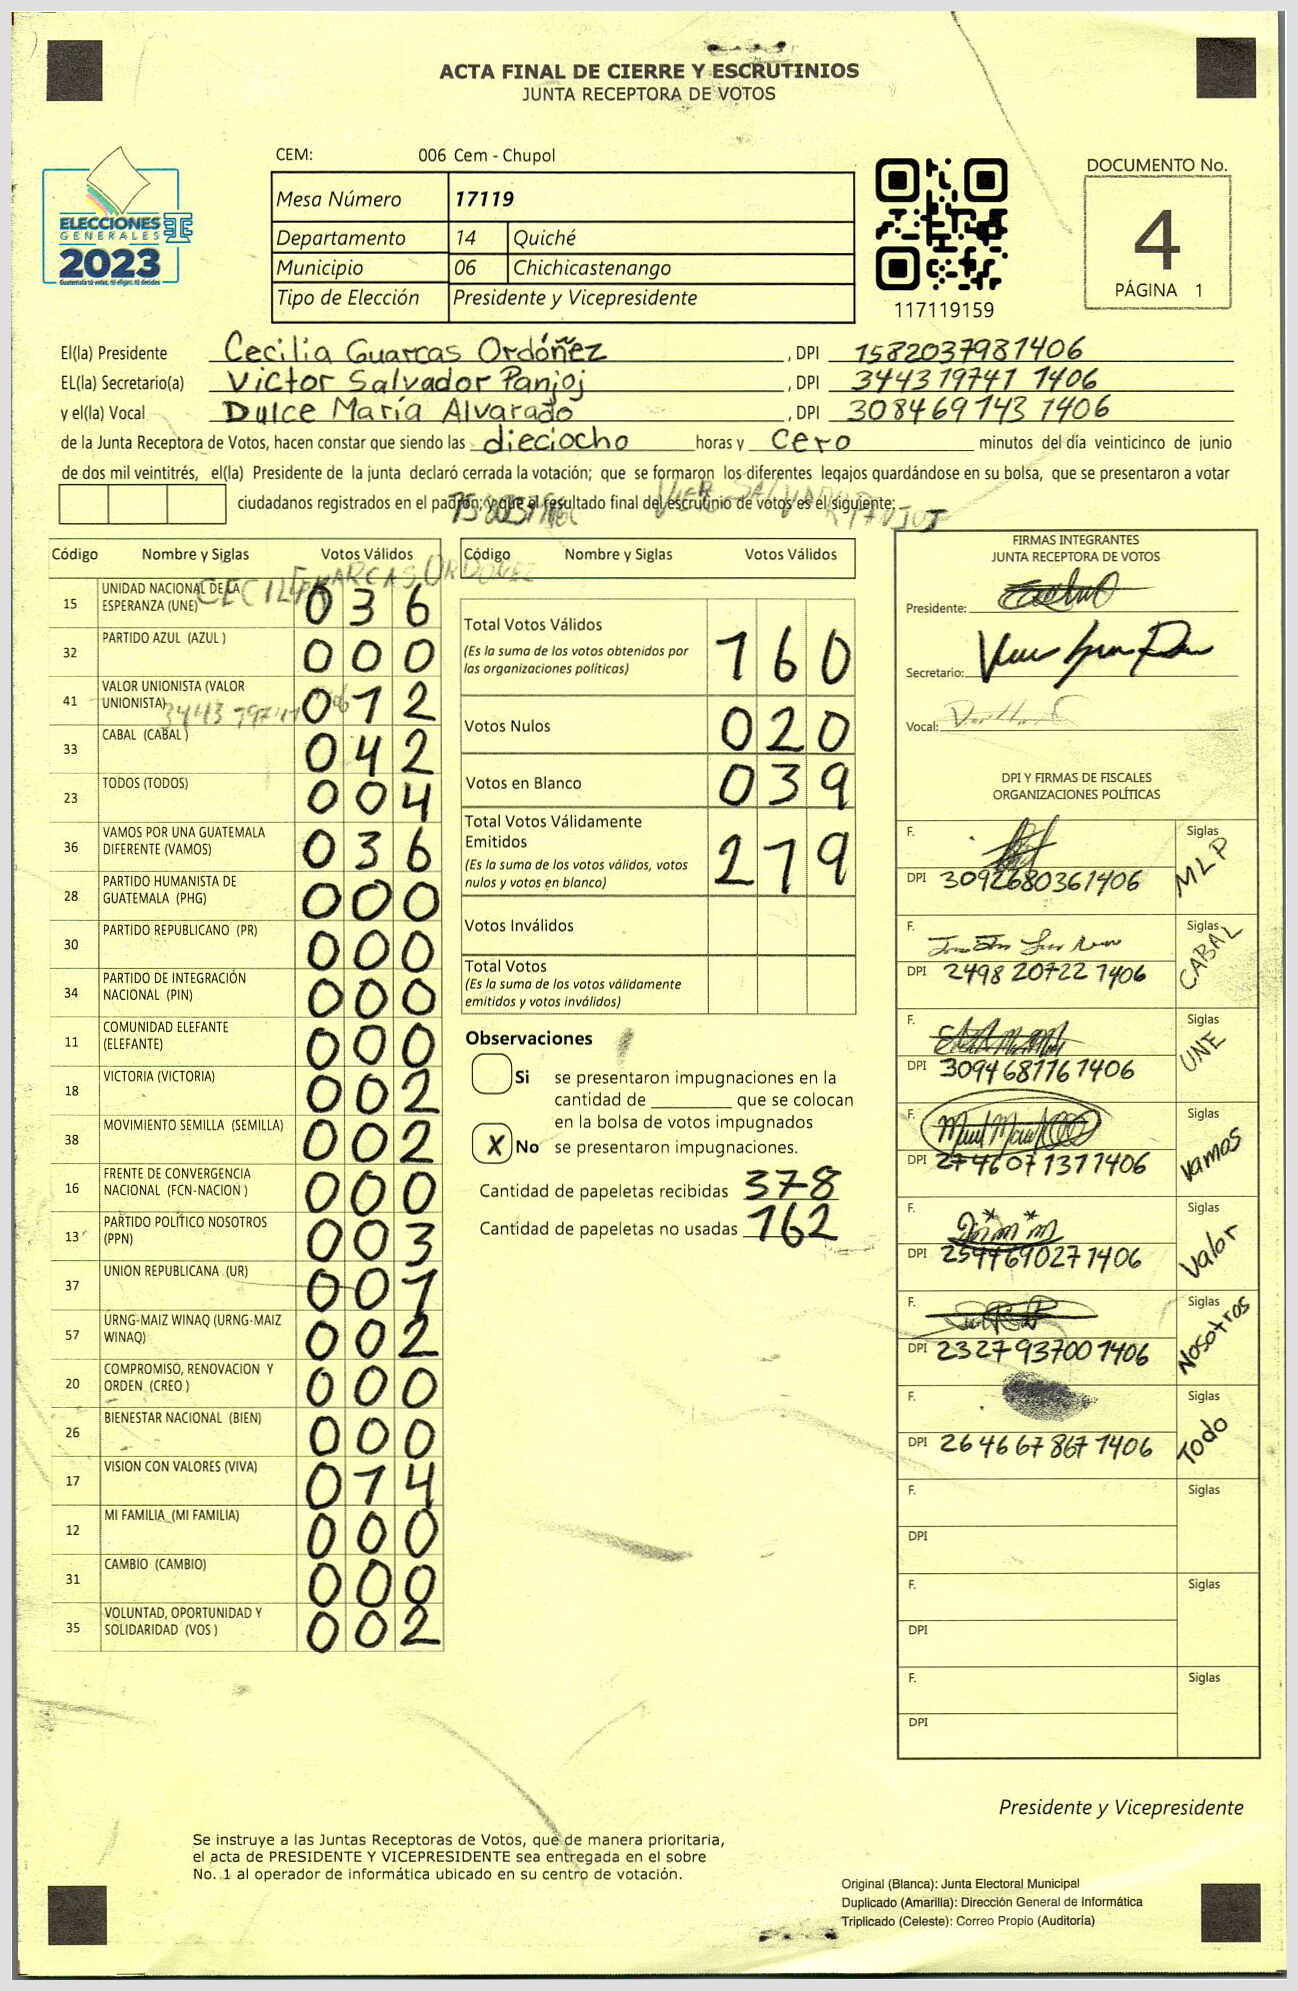 ACTA FINAL DE CIERRE Y ESCRUTINIOS
JUNTA RECEPTORA DE VOTOS
CEM: 006 Cem - Chupol
Mesa Número 17119
Departamento 14 Quiché
Municipio 06 Chichicastenango
Tipo de Elección Presidente y Vicepresidente
ELECCIONES
GENERALES
2023
Guatemala tú votas, tú eliges, tú decides
117119159
DOCUMENTO No.
4
PÁGINA 1
El(la) Presidente Cecilia Guarcas Ordóñez , DPI 1582037981406
EL(la) Secretario(a) Victor Salvador Panjoj , DPI 344319741 1406
y el(la) Vocal Dulce María Alvarado , DPI 308469143 1406
de la Junta Receptora de Votos, hacen constar que siendo las dieciocho horas y cero minutos del día veinticinco de junio
de dos mil veintitrés, el(la) Presidente de la junta declaró cerrada la votación; que se formaron los diferentes legajos guardándose en su bolsa, que se presentaron a votar
ciudadanos registrados en el padrón; y que el resultado final del escrutinio de votos es el siguiente:
Código Nombre y Siglas Votos Válidos
15 UNIDAD NACIONAL DE LA ESPERANZA (UNE) 036
32 PARTIDO AZUL (AZUL ) 000
41 VALOR UNIONISTA (VALOR UNIONISTA) 012
33 CABAL (CABAL ) 042
23 TODOS (TODOS) 004
36 VAMOS POR UNA GUATEMALA DIFERENTE (VAMOS) 036
28 PARTIDO HUMANISTA DE GUATEMALA (PHG) 000
30 PARTIDO REPUBLICANO (PR) 000
34 PARTIDO DE INTEGRACIÓN NACIONAL (PIN) 000
11 COMUNIDAD ELEFANTE (ELEFANTE) 000
18 VICTORIA (VICTORIA) 002
38 MOVIMIENTO SEMILLA (SEMILLA) 002
16 FRENTE DE CONVERGENCIA NACIONAL (FCN-NACION ) 000
13 PARTIDO POLÍTICO NOSOTROS (PPN) 003
37 UNION REPUBLICANA (UR) 001
57 URNG-MAIZ WINAQ (URNG-MAIZ WINAQ) 002
20 COMPROMISO, RENOVACION Y ORDEN (CREO ) 000
26 BIENESTAR NACIONAL (BIEN) 000
17 VISION CON VALORES (VIVA) 014
12 MI FAMILIA (MI FAMILIA) 000
31 CAMBIO (CAMBIO) 000
35 VOLUNTAD, OPORTUNIDAD Y SOLIDARIDAD (VOS ) 002
Código Nombre y Siglas Votos Válidos
Total Votos Válidos 160
(Es la suma de los votos obtenidos por
las organizaciones políticas)
Votos Nulos 020
Votos en Blanco 039
Total Votos Válidamente
Emitidos 219
(Es la suma de los votos válidos, votos
nulos y votos en blanco)
Votos Inválidos
Total Votos
(Es la suma de los votos válidamente
emitidos y votos inválidos)
Observaciones
Si se presentaron impugnaciones en la
cantidad de ________ que se colocan
en la bolsa de votos impugnados
X No se presentaron impugnaciones.
Cantidad de papeletas recibidas 378
Cantidad de papeletas no usadas 162
FIRMAS INTEGRANTES
JUNTA RECEPTORA DE VOTOS
Presidente:
Secretario:
Vocal:
DPI Y FIRMAS DE FISCALES
ORGANIZACIONES POLÍTICAS
F. Siglas MLP
DPI 3092680361406
F. Siglas CABAL
DPI 2498 20722 1406
F. Siglas UNE
DPI 3094681761406
F. Siglas Vamos
DPI 2746071371406
F. Siglas Valor
DPI 2594690271406
F. Siglas Nosotros
DPI 2327937001406
F. Siglas Todo
DPI 2646678671406
F. Siglas
DPI
F. Siglas
DPI
F. Siglas
DPI
Presidente y Vicepresidente
Se instruye a las Juntas Receptoras de Votos, que de manera prioritaria,
el acta de PRESIDENTE Y VICEPRESIDENTE sea entregada en el sobre
No. 1 al operador de informática ubicado en su centro de votación.
Original (Blanca): Junta Electoral Municipal
Duplicado (Amarilla): Dirección General de Informática
Triplicado (Celeste): Correo Propio (Auditoría)